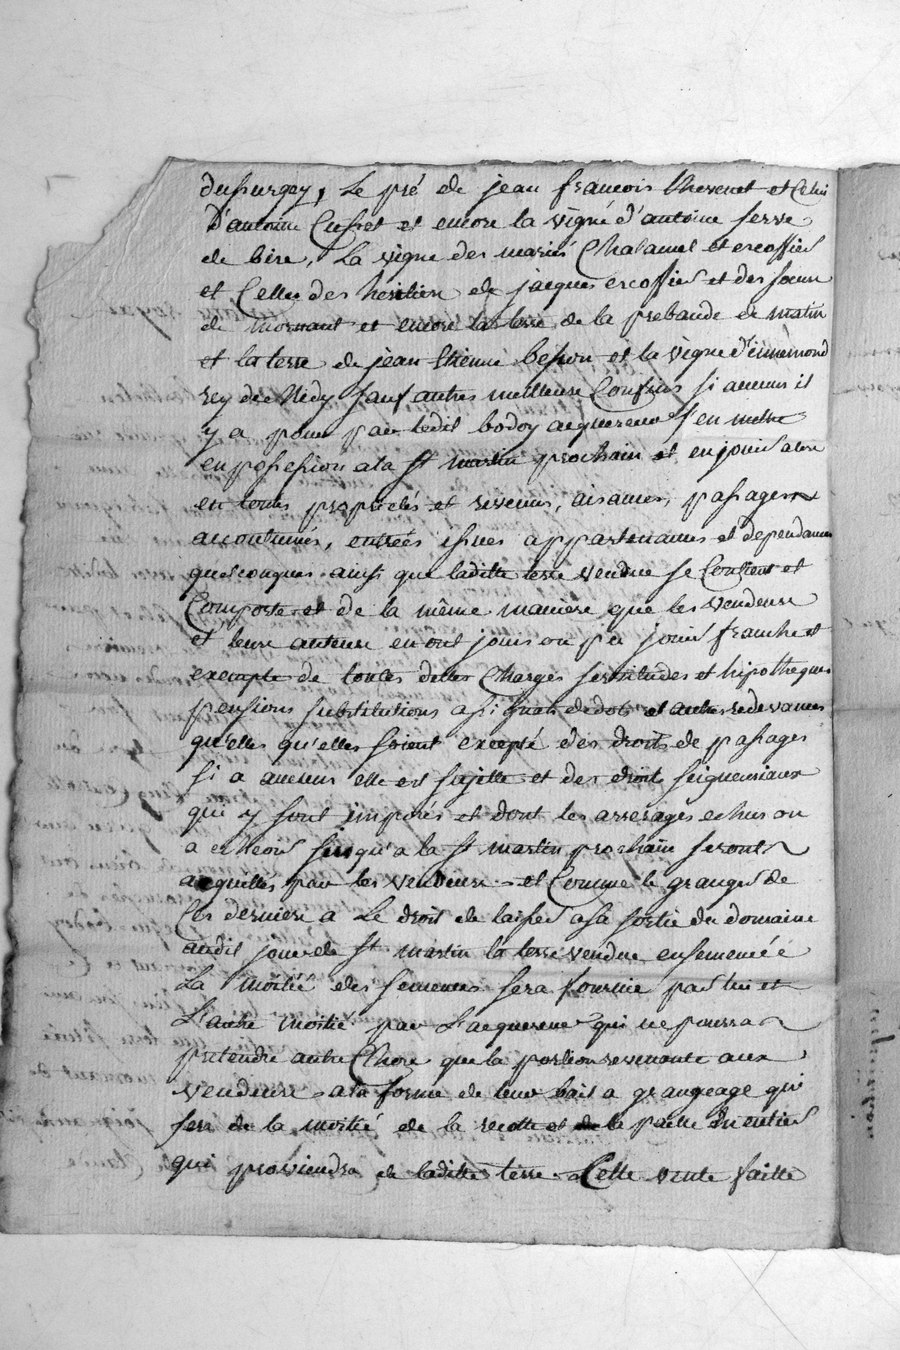 dusurgey, Le pré de jean francois thevenet et Celui
D'antoine Cusset et encore la vigne d'antoine serve
de bire, La vigne des mariés Chalamel et escoffier
et Celles des heritiers de jacques escoffier et des soeurs
de mornant et encore la terre de la prebande de matin
et la terre de jean Etienne besson et la vigne d'ennemond
rey de Nidy sauf autres meilleurs Confins si aucuns il
y a pour par ledit bodoy acquereur s'en mettre
en possession a la St martin prochain et en jouir alors
en toutes proprietés et revenus, aisances, passages
accoutumés, entrées issues appartenances et dependances
quelconques ainsi que laditte terre vendue se Contient et
Comporte et de la même maniere que les vendeurs
et leurs auteurs en ont joui ou pu jouir franche et
exempte de toutes dettes Charges servitudes et hipotheques
pensions substitutions assignats de dots et autres redevances
qu'elles qu'elles soient excepté des droits de passages
si a aucuns elle est sujette et des droits seigneuriaux
qui y sont imposés et dont les arrerages echus ou
a echeoir jusqu'a la St martin prochain seront
acquittés par les vendeurs et Comme le granger de
Ces derniers a Le droit de laisser a sa sortie du domaine
audit jour de St martin la terre vendue ensemencée
La moitié des semences sera fournie par lui et
L'autre moitié par L'acquereur qui ne pourra
pretendre autre Chose que la portion revenante aux
vendeurs a la forme de leur bail a grangeage qui
sera de la moitié de la recolte et de la paille en entier
qui proviendra de laditte terre. Cette vente faitte